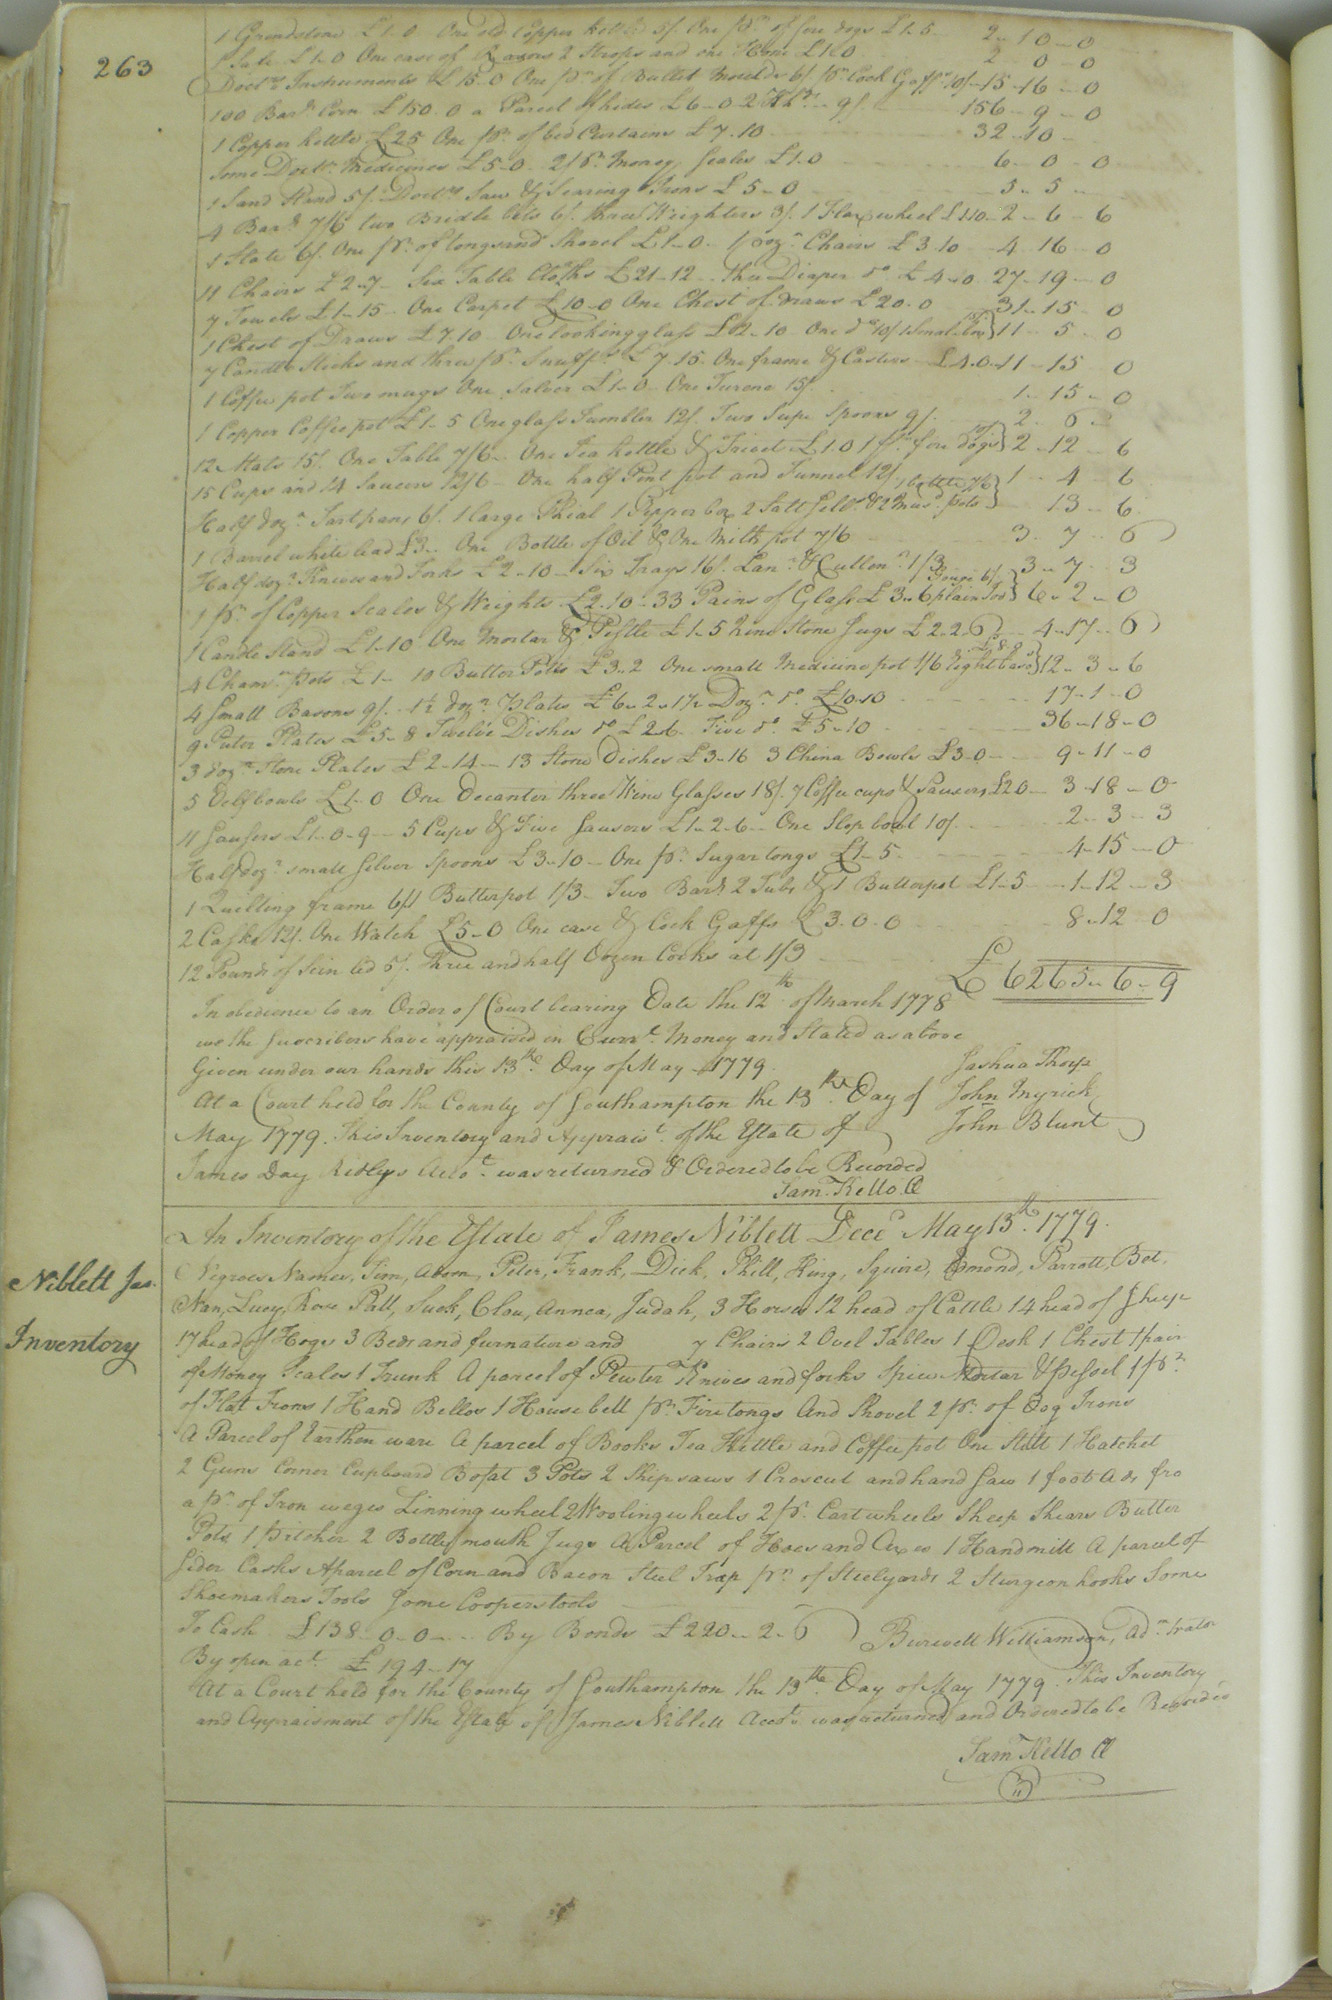 263
1 Grindstone £1-0 One old Copper kettle 5/. One pr. of fire dogs £1-5 2-10-0
1 Sute £1-0 One case of Razors 2 Strops and one Hone £1-0 2 0-0
Doctrs Instruments £15-0 One pr. of Bullet Moulds 6/. pr. Cock Gaffs 10/- 15-16-0
100 Barrs Corn £150-0 a Parcel of hides £6-0 2 9/. 156-9-0
1 Copper kettle £25 One pr. of bed Curtains £7-10 32-10
Some Doctrs Medicines £5-0 2 pr. Money Scales £1-0 6-0-0
1 Sand Stand 5/. Doctrs Saw & Searing Irons £5-0 5-5
4 Barrs 7/6 two Bridle bits 6/. three Weighters 3/. 1 Flax wheel £1-10 2-6-6
1 Slate 6/. One pr. of tongs and Shovel £1-0 1 dozn Chairs £3-10 4-16-0
11 Chairs £2-7 Six Table Cloths £21-12 three Diaper do £4-0 27-19-0
7 Towels £1-15 One Carpet £10-0 One Chest of draws £20-0 31-15-0
1 Chest of Draws £7-10 One looking glass £2-10 One do 10/ 1 Small box 15/. 11-5-0
7 Candle Sticks and three pr. Snuffs £7-15 One frame & Casters £4-0 11-15 0
1 Coffee pot Two mugs One Salver £1-0 One Turene 15/. 1-15-0
1 Copper Coffee pot £1-5 One glass Tumbler 12/. Two Supe Spoons 9/. 2-6-
12 Mats 15/. One Table 7/6 One Tea kettle & Trivet £1-0 1 pr. fire dogs 10/. 2-12-6
15 Cups and 14 Saucers 12/6 One half Pint pot and Funnel 12/. 1-4-6
Half dozn Tart pans 6/. 1 large Phial 1 Pepper box 2 Salt Sells & 2 Musd pots 1 bottle 7/6 13-6
1 Barrel white lead £3 One Bottle of Oil & One Milk pot 7/6 3-7-6
Half dozn Knives and Forks £2-10 Six Trays 16/. Lann & Cullenr 1/3 3-7-3
1 pr. of Copper Scales & Weights £2-10 33 Pains of Glass £3-6 plain Iron 6/. 6-2-0
1 Candle Stand £1-10 One Mortar & Pestle £1-5 Nine Stone Jugs £2-2-6 4-17-6
4 Chamr Pots £1 10 Butter Potts £3-2 One small Medicine pot 1/6 Eight Casks £8-0-0 12-3-6
4 Small Basons 9/. 1½ dozn Plates £6-2 1½ Dozn do £10-10 17-1-0
9 Puter Plates £5-8 Twelve Dishes do £26 Five do £5-10 36-18-0
3 dozn Stone Plates £2-14 13 Stone Dishes £3-16 3 China Bowls £3-0 9-11-0
5 Delf bowls £1-0 One Decanter three Wine Glasses 18/. 7 Coffee cups & Sausers £20 3-18-0
11 Sausers £1-0-9 5 Cups & Five Sausers £1-2-6 One Slop bowl 10/. 2-3-3
Half dozn small Silver Spoons £3-10 One pr. Sugar tongs £1-5 4-15-0
1 Quilting frame 6/ 1 Butterpot 1/3 Two Barrs 2 Tubs & 1 Butterpot £1-5 1-12-3
2 Casks 12/. One Watch £5-0 One case & Cock Gaffs £3-0-0 8-12 0
12 Pounds of Sein led 5/. Three and half Dozen Corks at 1/3
£ 6265-6-9
In obedience to an Order of Court bearing Date the 12th of March 1778
we the Suscribers have appraised in Currt Money and Stated as above
Given under our hands this 13th Day of May 1779. Joshua Thorp
At a Court held for the County of Southampton the 13th Day of John Myrick
May 1779. This Inventory and Appraist of the Estate of John Blunt
James Day Ridleys Acco.t was returned & Ordered to be Recorded
Saml Kello Cl
An Inventory of the Estate of James Niblett Decd May 13th 1779.
Niblett Jas.
Inventory
Negroes Names, Jim, Abom, Peter, Frank, Dick, Phill, King, Squire, Edmond, Parrott, Bob,
Nan, Lucy, Rose Patt, Suck, Cloa, Annea, Judah, 3 Horses 12 head of Cattle 14 head of Sheep
17 head of Hogs 3 Beds and furnature and 7 Chairs 2 Ovel Tables 1 Desk 1 Chest 1 pair
of Money Scales 1 Trunk A parcel of Pewter Knives and forks Spice Mortar & Pessel 1 pr.
of Flat Irons 1 Hand Bellos 1 House bell pr. Fire tongs And Shovel 2 pr. of Dog Irons
A Parcel of Earthen ware A parcel of Books Tea Kettle and Coffee pot One Still 1 Hatchet
2 Guns Corner Cupboard Bofat 3 Pots 2 Whip saws 1 Croscut and hand Saw 1 foot Adz fro
a pr. of Iron weges Linning wheel 2 Wooling wheels 2 pr. Cart wheels Sheep Shears Butter
Pots 1 Pitcher 2 Bottles mouth Jugs A Parcel of Hoes and Axes 1 Handmill A parcel of
Sider Casks A parcel of Corn and Bacon Steel Trap pr. of Steelyards 2 Sturgeon hooks Some
Shoemakers Tools Some Cooperstools
To Cash £138-0-0 By Bonds £220-2-6 Burwell Williamson, Admtrator
By open act. £194-17
At a Court held for the County of Southampton the 13th Day of May 1779. This Inventory
and Appraisment of the Estate of James Niblett Accot. was returned and Ordered to be Recorded
Saml Kello Cl